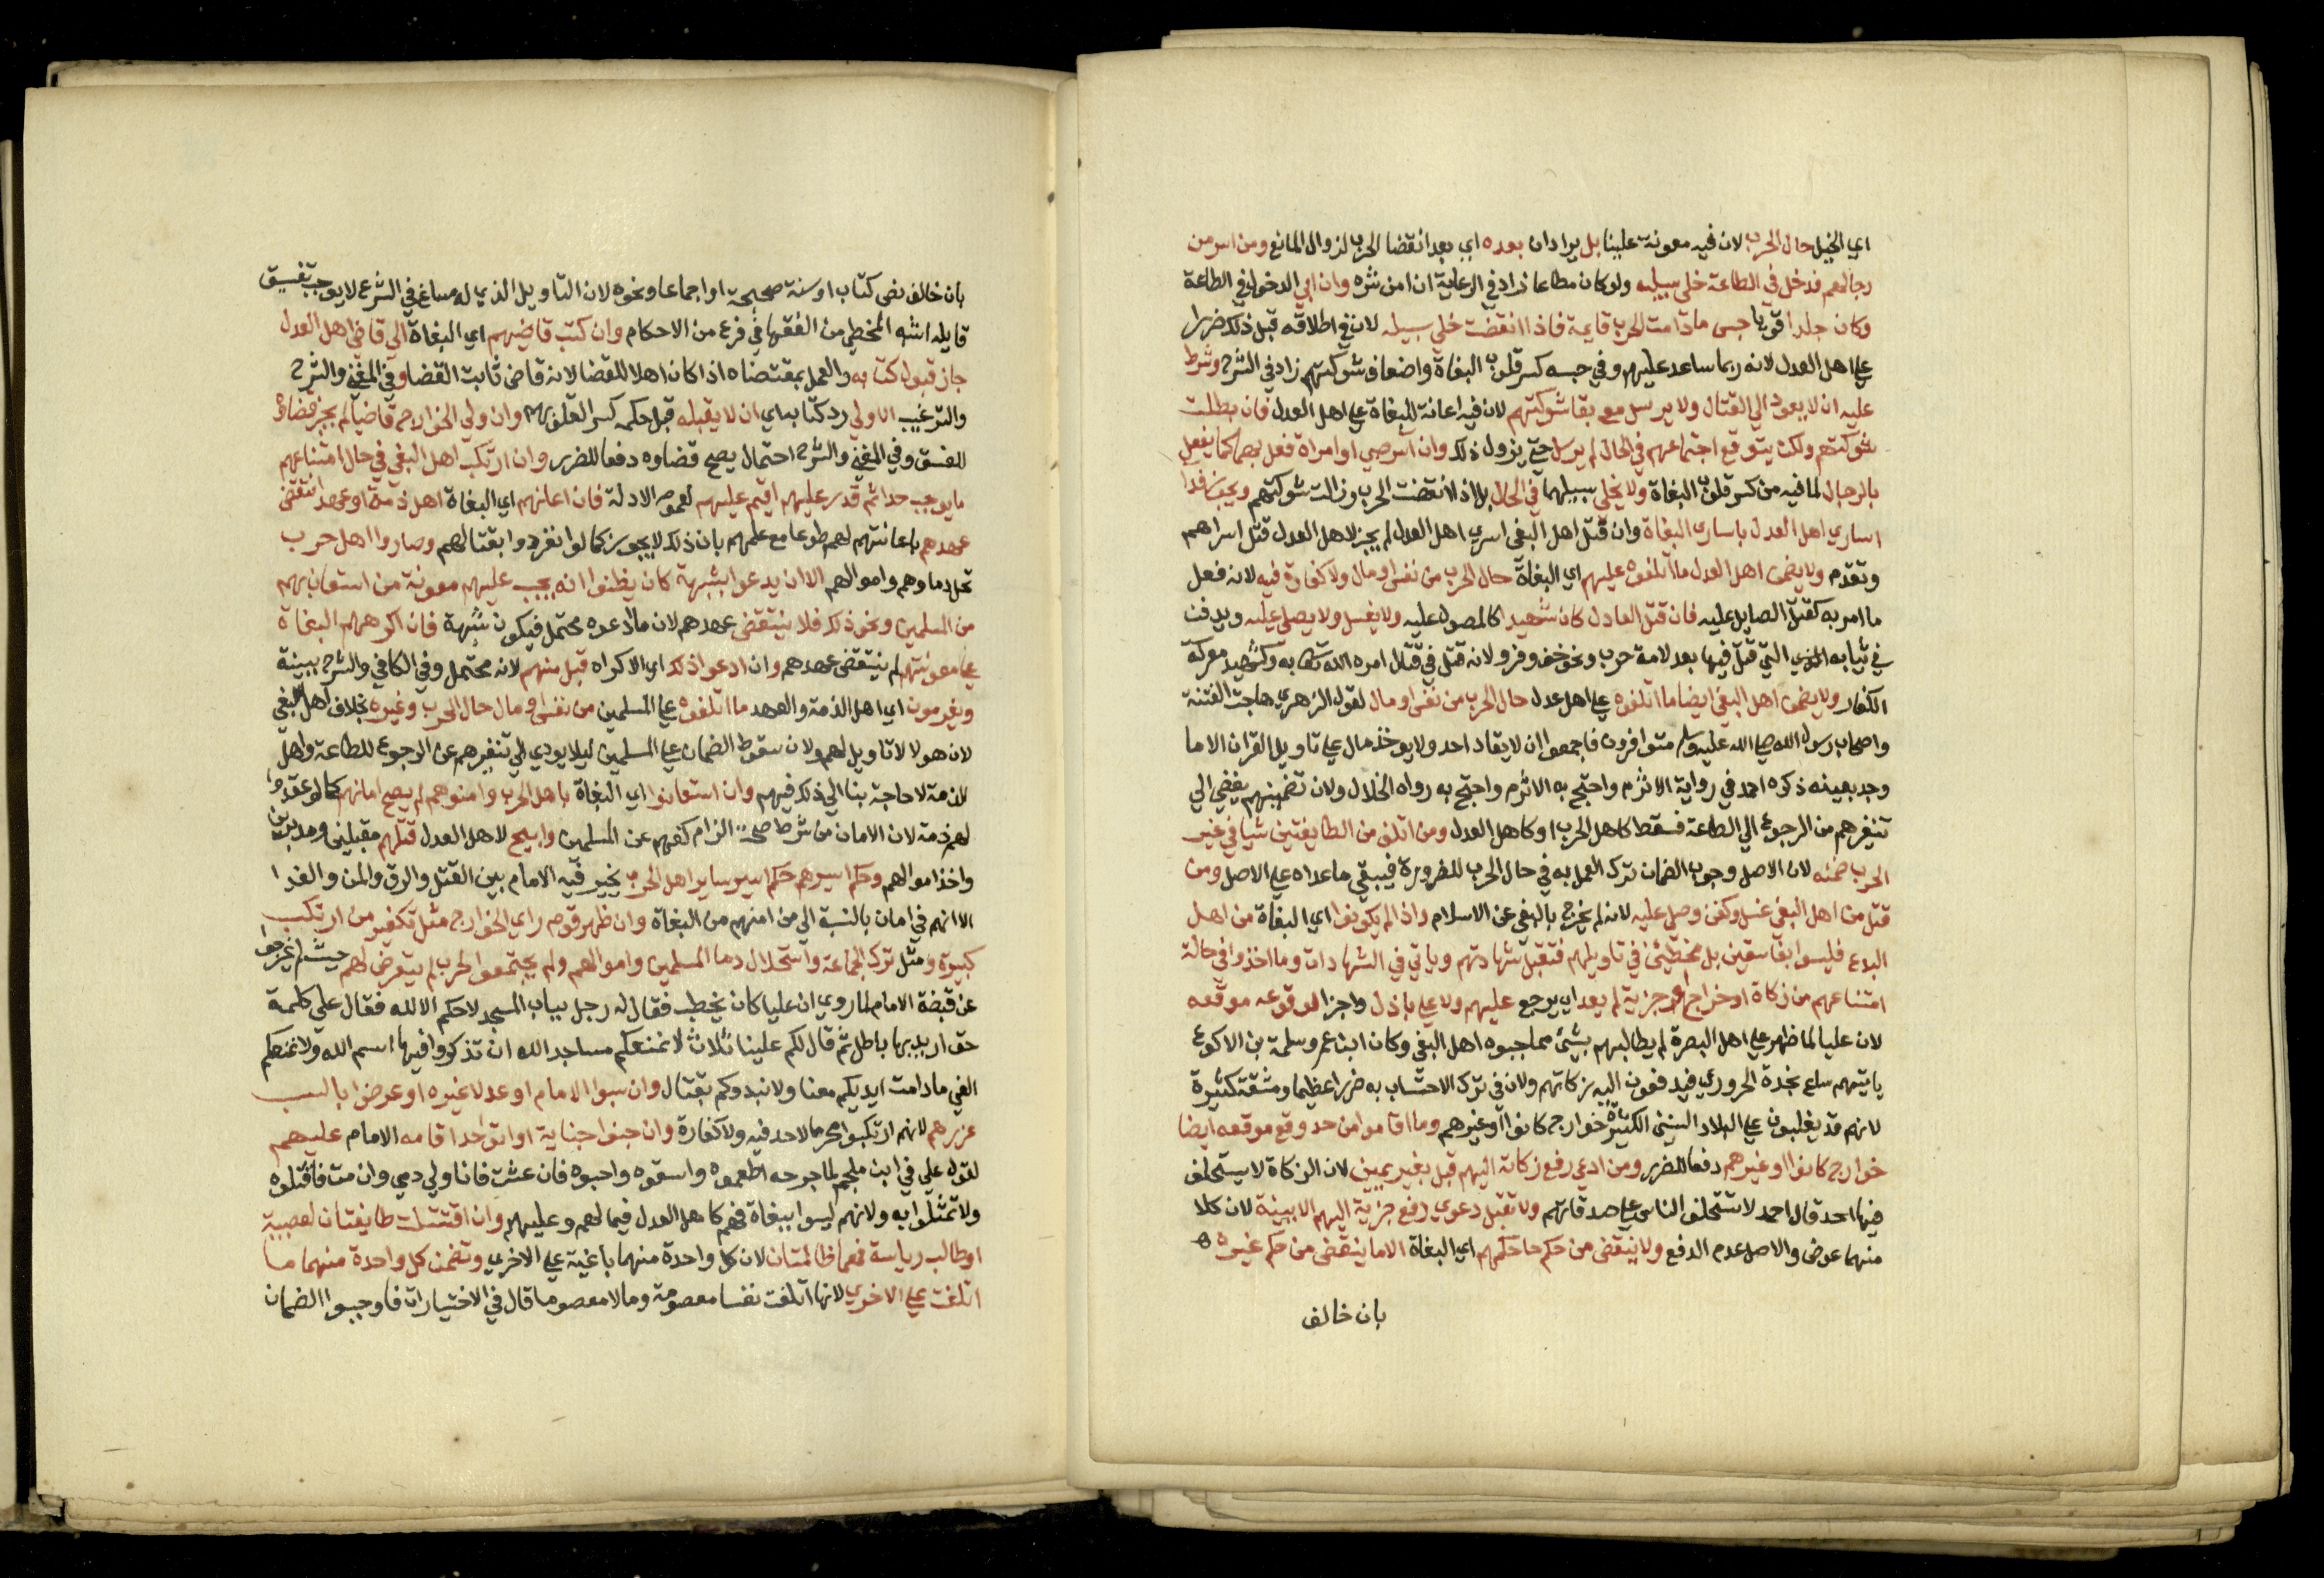 اي الخيل حال الحرب لان فيه معونة علينا بل يرادان بعده اي بعد انقضا الحرب لزوال المانع ومن اسر من
رجالهم فدخل في الطاعة خلي سبيله ولو كان مطاعا زاد في الرعاية ان امن شره وان ابي الدخول في الطاعة
وكان جلدا قويا حبس مادامت الحرب قايمة فاذا انقضت خلي سبيله لان في اطلاقه قبل ذلك ضررا
علي اهل العدل لانه ربما ساعد عليهم وفي حبسه كسر قلوب البغاة واضعاف شوكتهم زاد في الشرح وشرط
عليه ان لا يعود الي القتال ولا يرسل مع بقا شوكتهم لان فيه اعانة للبغاة علي اهل العدل فان بطلت
شوكتهم ولكن يتوقع اجتماعهم في الحال لم يرسل حتي يزول ذلك وان اسر صبي او امراة فعل بهما كما يفعل
بالرجال لما فيه من كسر قلوب البغاة ولا يخلي سبيلهما في الحال بل اذا انقضت الحرب وزالت شوكتهم ويجوز فدا
اساري اهل العدل باساري البغاة وان قتل اهل البغي اسري اهل العدل لم يجز لاهل العدل قتل اسراهم
وتقدم ولا يضمن اهل العدل ما اتلفوه عليهم اي البغاة حال الحرب من نفس او مال ولا كفارة فيه لانه فعل
ما امر به كقتل الصايل عليه فان قتل العادل كان شهيدا كالمصول عليه ولا يغسل ولا يصلي عليه ويدفن
في ثيابه التي قتل فيها بعد لامة حرب ونحو خف وفرو لانه قتل في قتال امره الله تعالى به وكشهيد معركة
الكفار ولا يضمن اهل البغي ايضا ما اتلفوه علي اهل عدل حال الحرب من نفس او مال لقول الزهري هاجت الفتنة
واصحاب رسول الله صلي الله عليه وسلم متوافرون فاجمعوا ان لا يقاد احد ولا يوخذ مال علي تاويل القران الا ما
وجد بعينه ذكره احمد في رواية الاثرم واحتج به الاثرم واحتج به رواه الخلال ولان تضمينهم يفضي الي
تنفيرهم من الرجوع الي الطاعة فسقط كاهل الحرب او كاهل العدل ومن اتلف من الطايفتين شيا في غير
الحرب ضمنه لان الاصل وجوب الضمان ترك العمل به في حال الحرب للضرورة فيبقي ما عداه علي الاصل ومن
قتل من اهل البغي غسل وكفن وصلي عليه لانه لم يخرج بالبغي عن الاسلام واذا لم يكونوا اي البغاة من اهل
البدع فليسوا بفاسقين بل مخطئين في تاويلهم فتقبل شهادتهم وياتي في الشهادات وما اخذوا في حالة
امتناعهم من زكاة او خراج او جزية لم يعد اي يرجع عليهم ولا علي باذل واجزا لوقوعه موقعه
لان عليا لما ظهر علي اهل البصرة لم يطالبهم بشيء مما جبوه اهل البغي وكان ابن عمر وسلمة بن الاكوع
ياتيهم ساع نجدة الحروري فيدفعون اليه زكاتهم ولان في ترك الاحتساب به ضررا عظيما ومشقة كثيرة
لانهم قد يغلبون علي البلاد السنين الكثيرة خوارج كانوا او غيرهم وما اقاموا من حد وقع موقعه ايضا
خوارج كانوا او غيرهم دفعا للضرر ومن ادعي دفع زكاته اليهم قبل بغير يمين لان الزكاة لا يستحلف
فيها احد قال احمد لا تستحلف الناس علي صدقاتهم ولا تقبل دعوي دفع جزية اليهم الا ببينة لان كلا
منهما عوض والاصل عدم الدفع ولا ينقض من حكم حاكمهم اي البغاة الا ما ينقض من حكم غيره
بان خالف
بان خالف نص كتاب او سنة صحيحة او اجماعا ونحوه لان التاويل الذي له مساغ في الشرع لا يوجب تفسيق
قايله اشبه المخطي من الفقها في فرع من الاحكام وان كتب قاضيهم اي البغاة الي قاضي اهل العدل
جاز قبول كتابه والعمل بمقتضاه اذا كان اهلا للقضا لانه قاض ثابت القضا وفي المغني والشرح
والترغيب الاولي رد كتابه اي ان لا يقبله قبل حكمه كسر القلوبهم وان ولي الخوارج قاضيا لم يجز قضاوه
للفسق وفي المغني والشرح احتمال يصح قضاوه دفعا للضرر وان ارتكب اهل البغي في حال امتناعهم
ما يوجب حدا ثم قدر عليهم اقيم عليهم لعموم الادلة فان اعانهم اي البغاة اهل ذمة او عهد انتقض
عهدهم باعانتهم لهم طوعا مع علمهم بان ذلك لا يجوز كما لو انفردوا بقتالهم وصاروا اهل حرب
تحل دماوهم واموالهم الا ان يدعوا شبهة كان يظنوا انه يجب عليهم معونة من استعان بهم
من المسلمين ونحو ذلك فلا ينتقض عهدهم لان ما ادعوه محتمل فيكون شبهة فان اكرههم البغاة
علي معونتهم لم ينتقض عهدهم وان ادعوا ذلك اي الاكراه قبل منهم لانه محتمل وفي الكافي والشرح ببينة
ويغرمون اي اهل الذمة والعهد ما اتلفوه علي المسلمين من نفس او مال حال الحرب وغيره بخلاف اهل البغي
لان هولا لا تاويل لهم ولان سقوط الضمان علي المسلمين ليلا يودي الي تنفيرهم عن الرجوع للطاعة واهل
الذمة لا حاجة بنا الي ذلك فيهم وان استعانوا اي البغاة باهل الحرب وامنوهم لم يصح امانهم كما لو عقدوا
لهم ذمة لان الامان من شرط صحته الزام كفهم عن المسلمين وابيح لاهل العدل قتلهم مقبلين ومدبرين
واخذ اموالهم وحكم اسيرهم حكم اسير ساير اهل الحرب يخير فيه الامام بين القتل والرق والمن والفدا
الا انهم في امان بالنسبة الي من امنهم من البغاة وان ظهر قوم راي الخوارج مثل تكفير من ارتكب
كبيرة ومثل ترك الجماعة واستحلال دما المسلمين واموالهم ولم يجتمعوا لحرب لم يتعرض لهم حيث لم يخرجوا
عن قبضة الامام لما روي ان عليا كان يخطب فقال له رجل بباب المسجد لا حكم الا لله فقال علي كلمة
حق اريد بها باطل ثم قال لكم علينا ثلاث لا نمنعكم مساجد الله ان تذكروا فيها اسم الله ولا نمنعكم
الفي مادامت ايديكم معنا ولا نبدوكم بقتال وان سبوا الامام او عدلا غيره او عرضوا بالسب
عزرهم لانهم ارتكبوا محرما لا حد فيه ولا كفارة وان جنوا جناية او اتوا حدا اقامه الامام عليهم
لقول علي في ابن ملجم لما جرحه اطعموه واسقوه واحبسوه فان عشت فانا ولي دمي وان مت فاقتلوه
ولا تمثلوا به ولانهم ليسوا ببغاة فهم كاهل العدل فيما لهم وعليهم وان اقتتلت طايفتان لعصبية
او طالب رياسة فهما ظالمتان لان كل واحدة منهما باغية علي الاخري وتضمن كل واحدة منهما ما
اتلفت علي الاخري لانها اتلفت نفسا معصومة ومالا معصوما قال في الاختيارات فاوجبوا الضمان